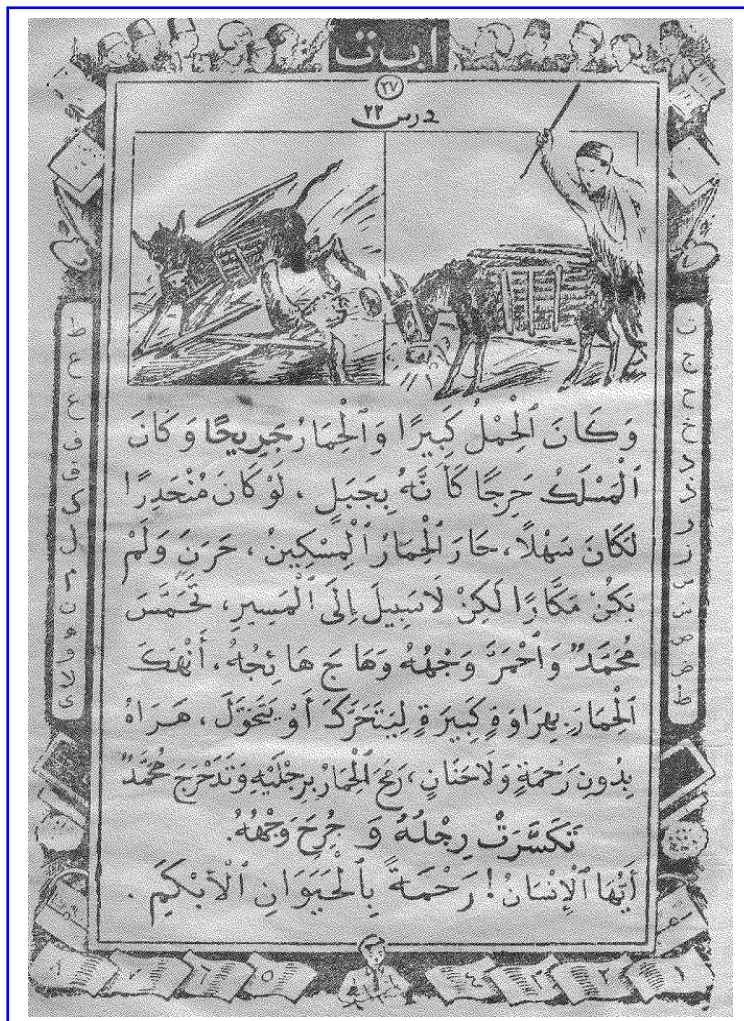 ا ب ت
٢٧
درس ٢٢
وَكَانَ ٱلْحِمْلُ كَبِيرًا وَٱلْحِمَارُ جَرِيحًا وَكَانَ
ٱلْمَسْلَكُ حَرِجًا كَأَنَّهُ بِجَبَلٍ ، لَوْ كَانَ مُنْحَدِرًا
لَكَانَ سَهْلًا، حَارَ ٱلْحِمَارُ ٱلْمِسْكِينُ ، حَرَنَ وَلَمْ
يَكُنْ مَكَّارًا لَكِنْ لَا سَبِيلَ إِلَى ٱلْمَسِيرِ، تَحَمَّسَ
مُحَمَّدٌ وَٱحْمَرَّ وَجْهُهُ وَهَاجَ هَائِجُهُ ، أَنْهَكَ
ٱلْحِمَارَ بِهِرَاوَةٍ كَبِيرَةٍ لِيَتَحَرَّكَ أَوْ يَتَحَوَّلَ ، هَرَاهُ
بِدُونِ رَحْمَةٍ وَلَا حَنَانٍ ، رَمَحَ ٱلْحِمَارُ بِرِجْلَيْهِ وَتَدَحْرَجَ مُحَمَّدٌ
تَكَسَّرَتْ رِجْلُهُ وَ جُرِحَ وَجْهُهُ.
أَيُّهَا ٱلْإِنْسَانُ ! رَحْمَةً بِٱلْحَيَوَانِ ٱلْأَبْكَمِ .
٨ ٧ ٦ ٥ ٤ ٣ ٢ ١